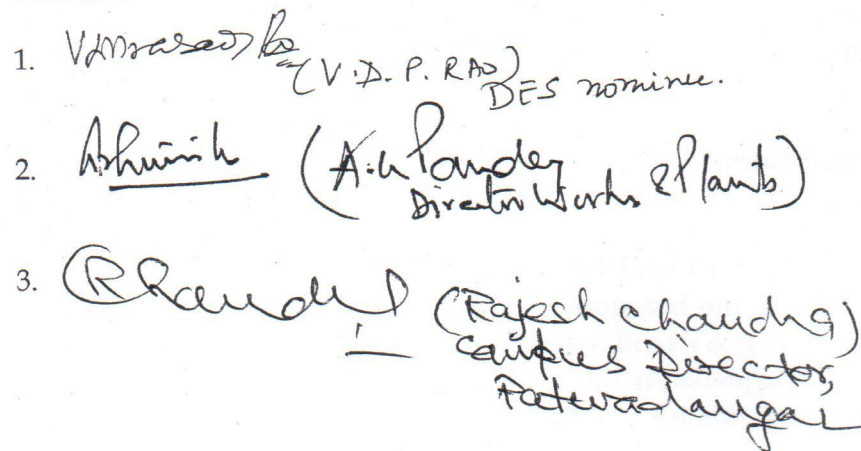 1. (V.D.P. RAO)
DES nominee.
2. Ashwinik (A.K Pandey
Director Works & Plants)
3. RChandra (Rajesh Chandra)
Campus Director,
Patwadangar